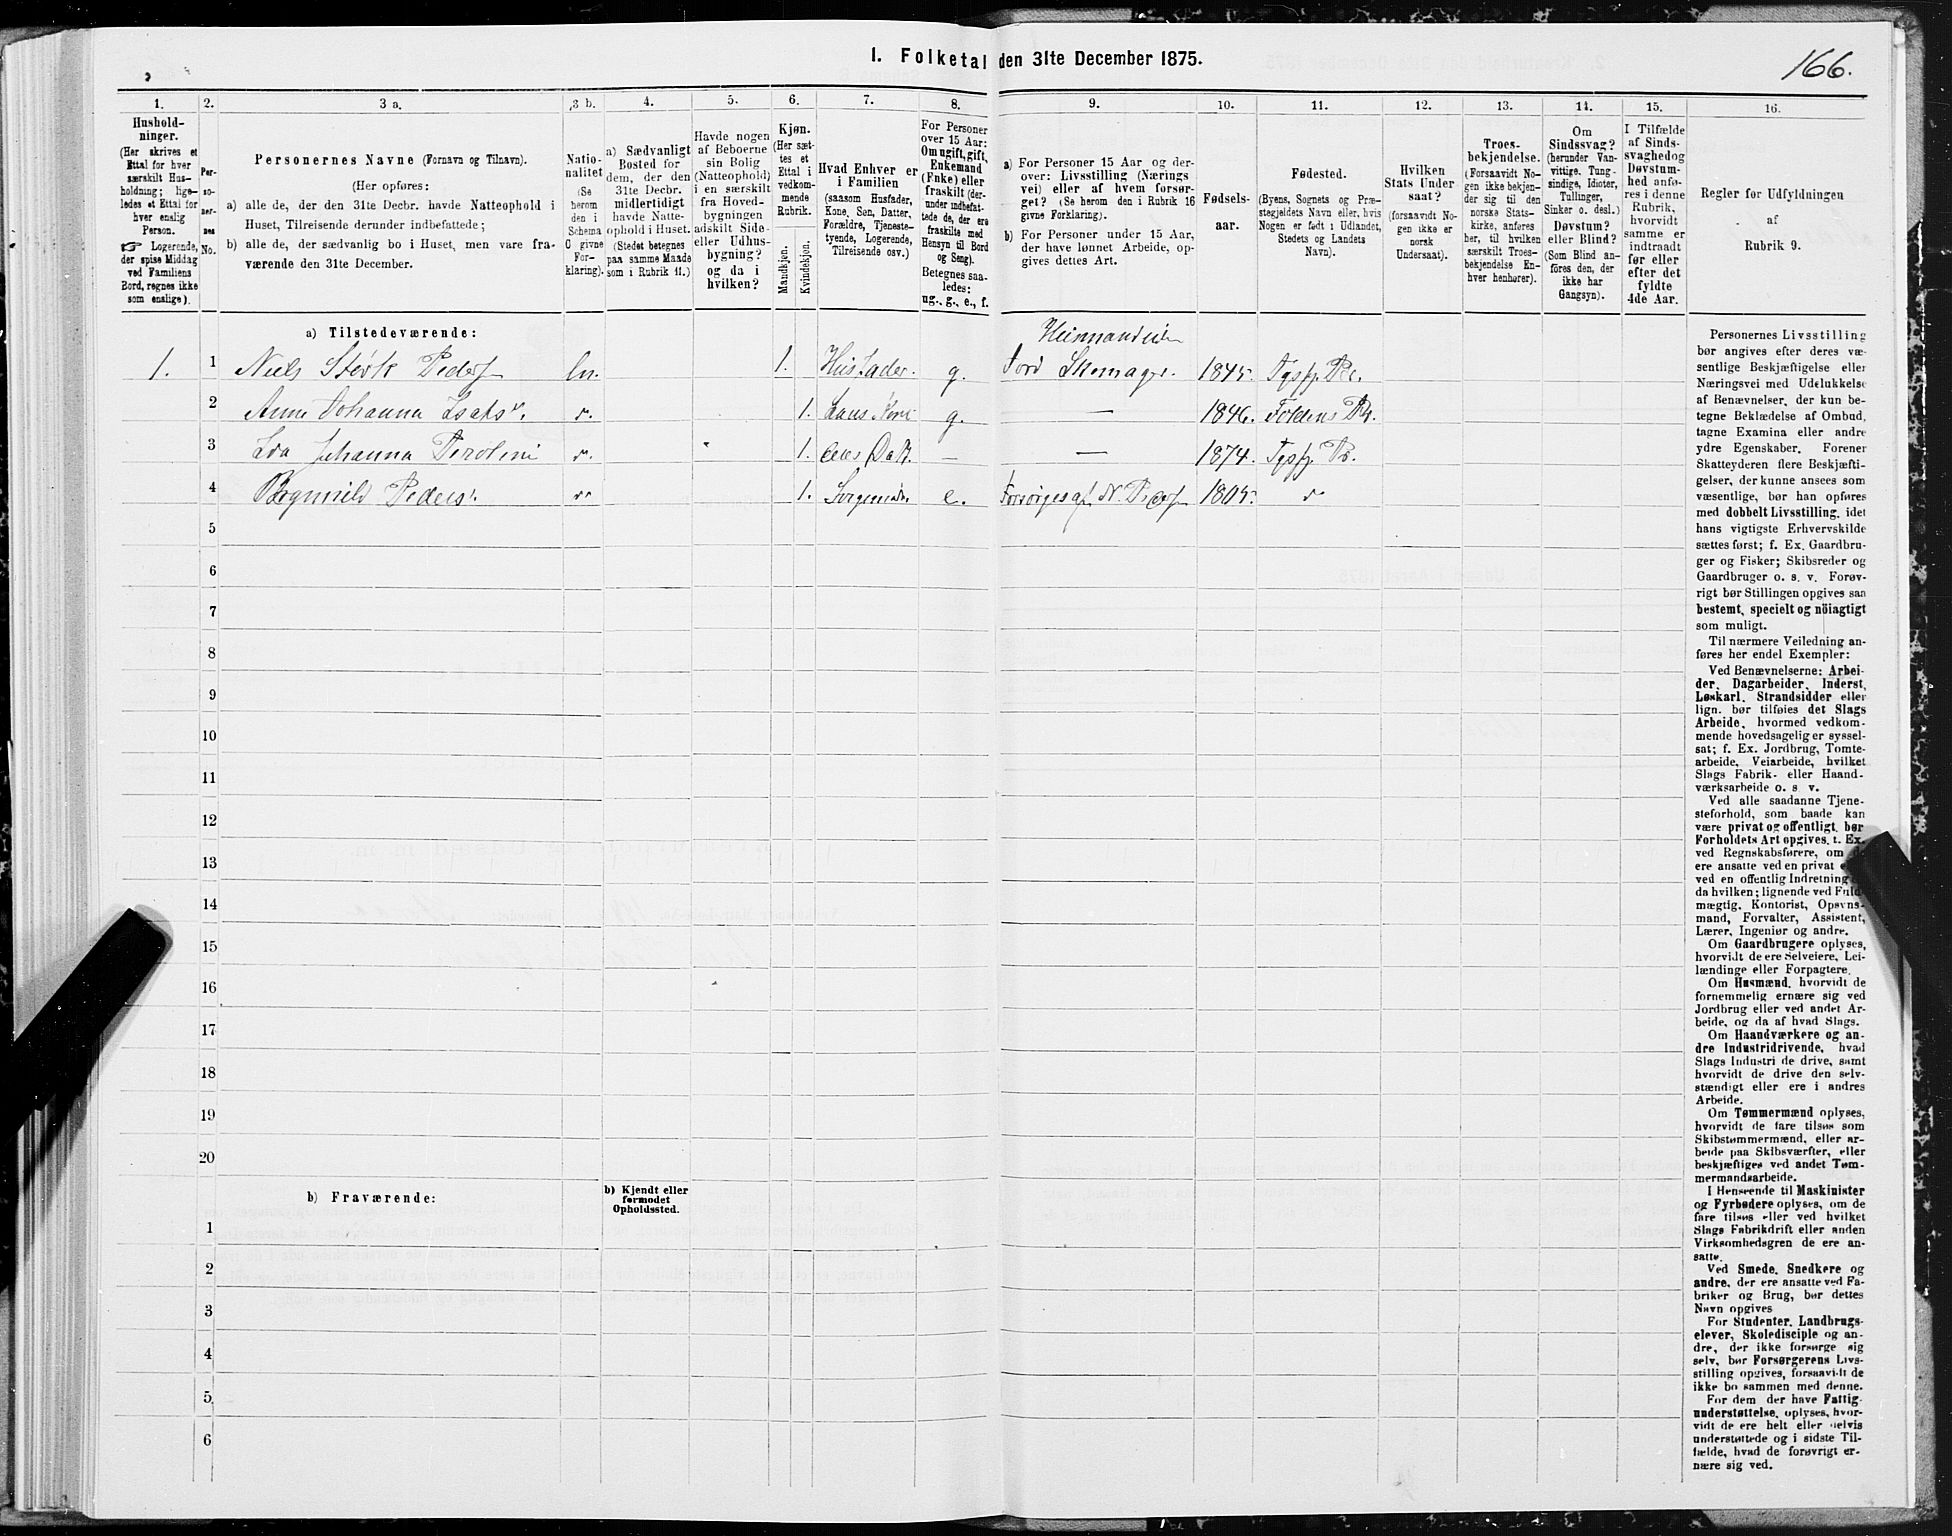 I. Folketal den 31te December 1875.
166.
1.
2.
3 a.
3 b.
4.
5.
6.
7.
8.
9.
10.
11.
12.
13.
14.
15.
16.
Hushold-
ninger.
(Her skrives et
Ettal for hver
særskilt Hus-
holdning; lige-
ledes et Ettal for
hver enslig
Person.
☞ Logerende,
der spise Middag
ved Familiens
Bord, regnes ikke
som enslige).
Per-
so-
ner-
nes
No.
Personernes Navne (Fornavn og Tilnavn).
(Her opføres:
a) alle de, der den 31te Decbr. havde Natteophold i
Huset, Tilreisende derunder indbefattede;
b) alle de, der sædvanlig bo i Huset, men vare fra-
værende den 31te December.
Natio-
nalitet
(Se
herom
den i
Schema
O givne
For-
klaring).
a) Sædvanligt
Bosted for
dem, der den
31te Decbr.
midlertidigt
havde Natte-
ophold i Huset.
(Stedet betegnes
paa samme Maade
som i Rubrik 11.)
Havde nogen
af Beboerne
sin Bolig
(Natteophold)
i en særskilt
fra Hoved-
bygningen
adskilt Side-
eller Udhus-
bygning?
og da i
hvilken?
Kjøn.
(Her sæt-
tes et
Ettal i
vedkom-
mende
Rubrik.
Mandkjøn.
Kvindekjøn.
Hvad Enhver er
i Familien
(saasom Husfader,
Kone, Søn, Datter,
Forældre, Tjeneste-
tyende, Logerende,
Tilreisende osv.)
For Personer
over 15 Aar:
Om ugift, gift,
Enkemand
(Enke) eller
fraskilt (der-
under indbefat-
tede de, der ere
fraskilte med
Hensyn til Bord
og Seng).
Betegnes saa-
ledes:
ug., g., e., f.
a) For Personer 15 Aar og der-
over: Livsstilling (Nærings
vei) eller af hvem forsør-
get? (Se herom den i Rubrik 16
givne Forklaring).
b) For Personer under 15 Aar,
der have lønnet Arbeide, op-
gives dettes Art.
Fødsels-
aar.
Fødested.
(Byens, Sognets og Præ-
stegjeldets Navn eller, hvis
Nogen er født i Udlandet,
Stedets og Landets
Navn).
Hvilken
Stats Under
saat?
(forsaavidt No-
gen ikke er
norsk
Undersaat).
Troes-
bekjendelse.
(Forsaavidt No-
gen ikke bekjen-
der sig til den
norske Stats-
kirke, anføres
her, til hvilken
særskilt Troes-
bekjendelse En-
hver henhører).
Om
Sindssvag?
(herunder Van-
vittige, Tung-
sindige, Idioter,
Tullinger,
Sinker o. desl.)
Døvstum?
eller Blind?
(Som Blind an-
føres den, der
ikke har
Gangsyn).
I Tilfælde
af Sinds-
svaghed og
Døvstum-
hed anfø-
res i denne
Rubrik,
hvorvidt
samme er
indtraadt
før eller
efter det
fyldte
4de Aar.
Regler for Udfyldningen
af
Rubrik 9.
a) Tilstedeværende:
1. 1 Niels Størk Peders 1. Husfader. g. 1845. Tysfj. Pr.
2 Anne Johanna Isaks. 1. g. — 1846. Foldens Pr.
3 Johanna 1. — — 1874. Tysfj. Pr.
4 Peders 1. e. Forsørges af N. Peders 1805.
5
6
7
8
9
10
11
12
13
14
15
16
17
18
19
20
b) Fraværende:
b) Kjendt eller
formodet
Opholdssted.
1
2
3
4
5
6
Personernes Livsstilling
bør angives efter deres væ-
sentlige Beskjæftigelse eller
Næringsvei med Udelukkelse
af Benævnelser, der kun be-
tegne Beklædelse af Ombud,
tagne Examina eller andre
ydre Egenskaber. Forener
Skatteyderen flere Beskjæfti-
gelser, der kunne ansees som
væsentlige, bør han opføres
med dobbelt Livsstilling, idet
hans vigtigste Erhvervskilde
sættes først; f. Ex. Gaardbru-
ger og Fisker; Skibsreder og
Gaardbruger o. s. v. Forøv-
rigt bør Stillingen opgives saa
bestemt, specielt og nöiagtigt
som muligt.
Til nærmere Veiledning an-
føres her endel Exempler:
Ved Benævnelserne: Arbei-
der, Dagarbeider, Inderst,
Løskarl, Strandsidder eller
lign. bør tilføies det Slags
Arbeide, hvormed vedkom-
mende hovedsagelig er syssel-
sat; f. Ex. Jordbrug, Tomte-
arbeide, Veiarbeide, hvilket
Slags Fabrik- eller Haand-
værksarbeide o. s. v.
Ved alle saadanne Tjene-
steforhold, som baade kan
være privat og offentligt, bør
Forholdets Art opgives, t. Ex.
ved Regnskabsførere, om
ere ansatte ved en privat
ved en offentlig Indretning
da hvilken; lignende ved Fuld-
mægtig, Kontorist, Opsyns-
mand, Forvalter, Assistent,
Lærer, Ingeniør og andre.
Om Gaardbrugere oplyses,
hvorvidt de ere Selveiere, Lei-
lændinge eller Forpagtere.
Om Husmænd, hvorvidt de
fornemmelig ernære sig ved
Jordbrug eller ved andet Ar-
beide, og da af hvad Slags.
Om Haandværkere og an-
dre Industridrivende, hvad
Slags Industri de drive, samt
hvorvidt de drive den selv-
stændigt eller ere i andres
Arbeide.
Om Tømmermænd oplyses,
hvorvidt de fare tilsøs som
Skibstømmermænd, eller ar-
beide paa Skibsværfter, eller
beskjæftiges ved andet Tøm-
mermandsarbeide.
I Henseende til Maskinister
og Fyrbødere oplyses, om de
fare tilsøs eller ved hvilket
Slags Fabrikdrift eller anden
Virksomhedsgren de ere an-
satte.
Ved Smede, Snedkere og
andre, der ere ansatte ved Fa-
briker og Brug, bør dettes
Navn opgives
For Studenter, Landbrugs-
elever, Skoledisciple og an-
dre, der ikke forsørge sig
selv, bør Forsørgerens Livs-
stilling opgives, forsaavidt de
ikke bo sammen med denne.
For dem der have Fattig-
understøttelse, oplyses, hvor-
vidt de ere helt eller delvis
understøttede og i sidste Til-
fælde, hvad de forøvrigt er-
nære sig ved.